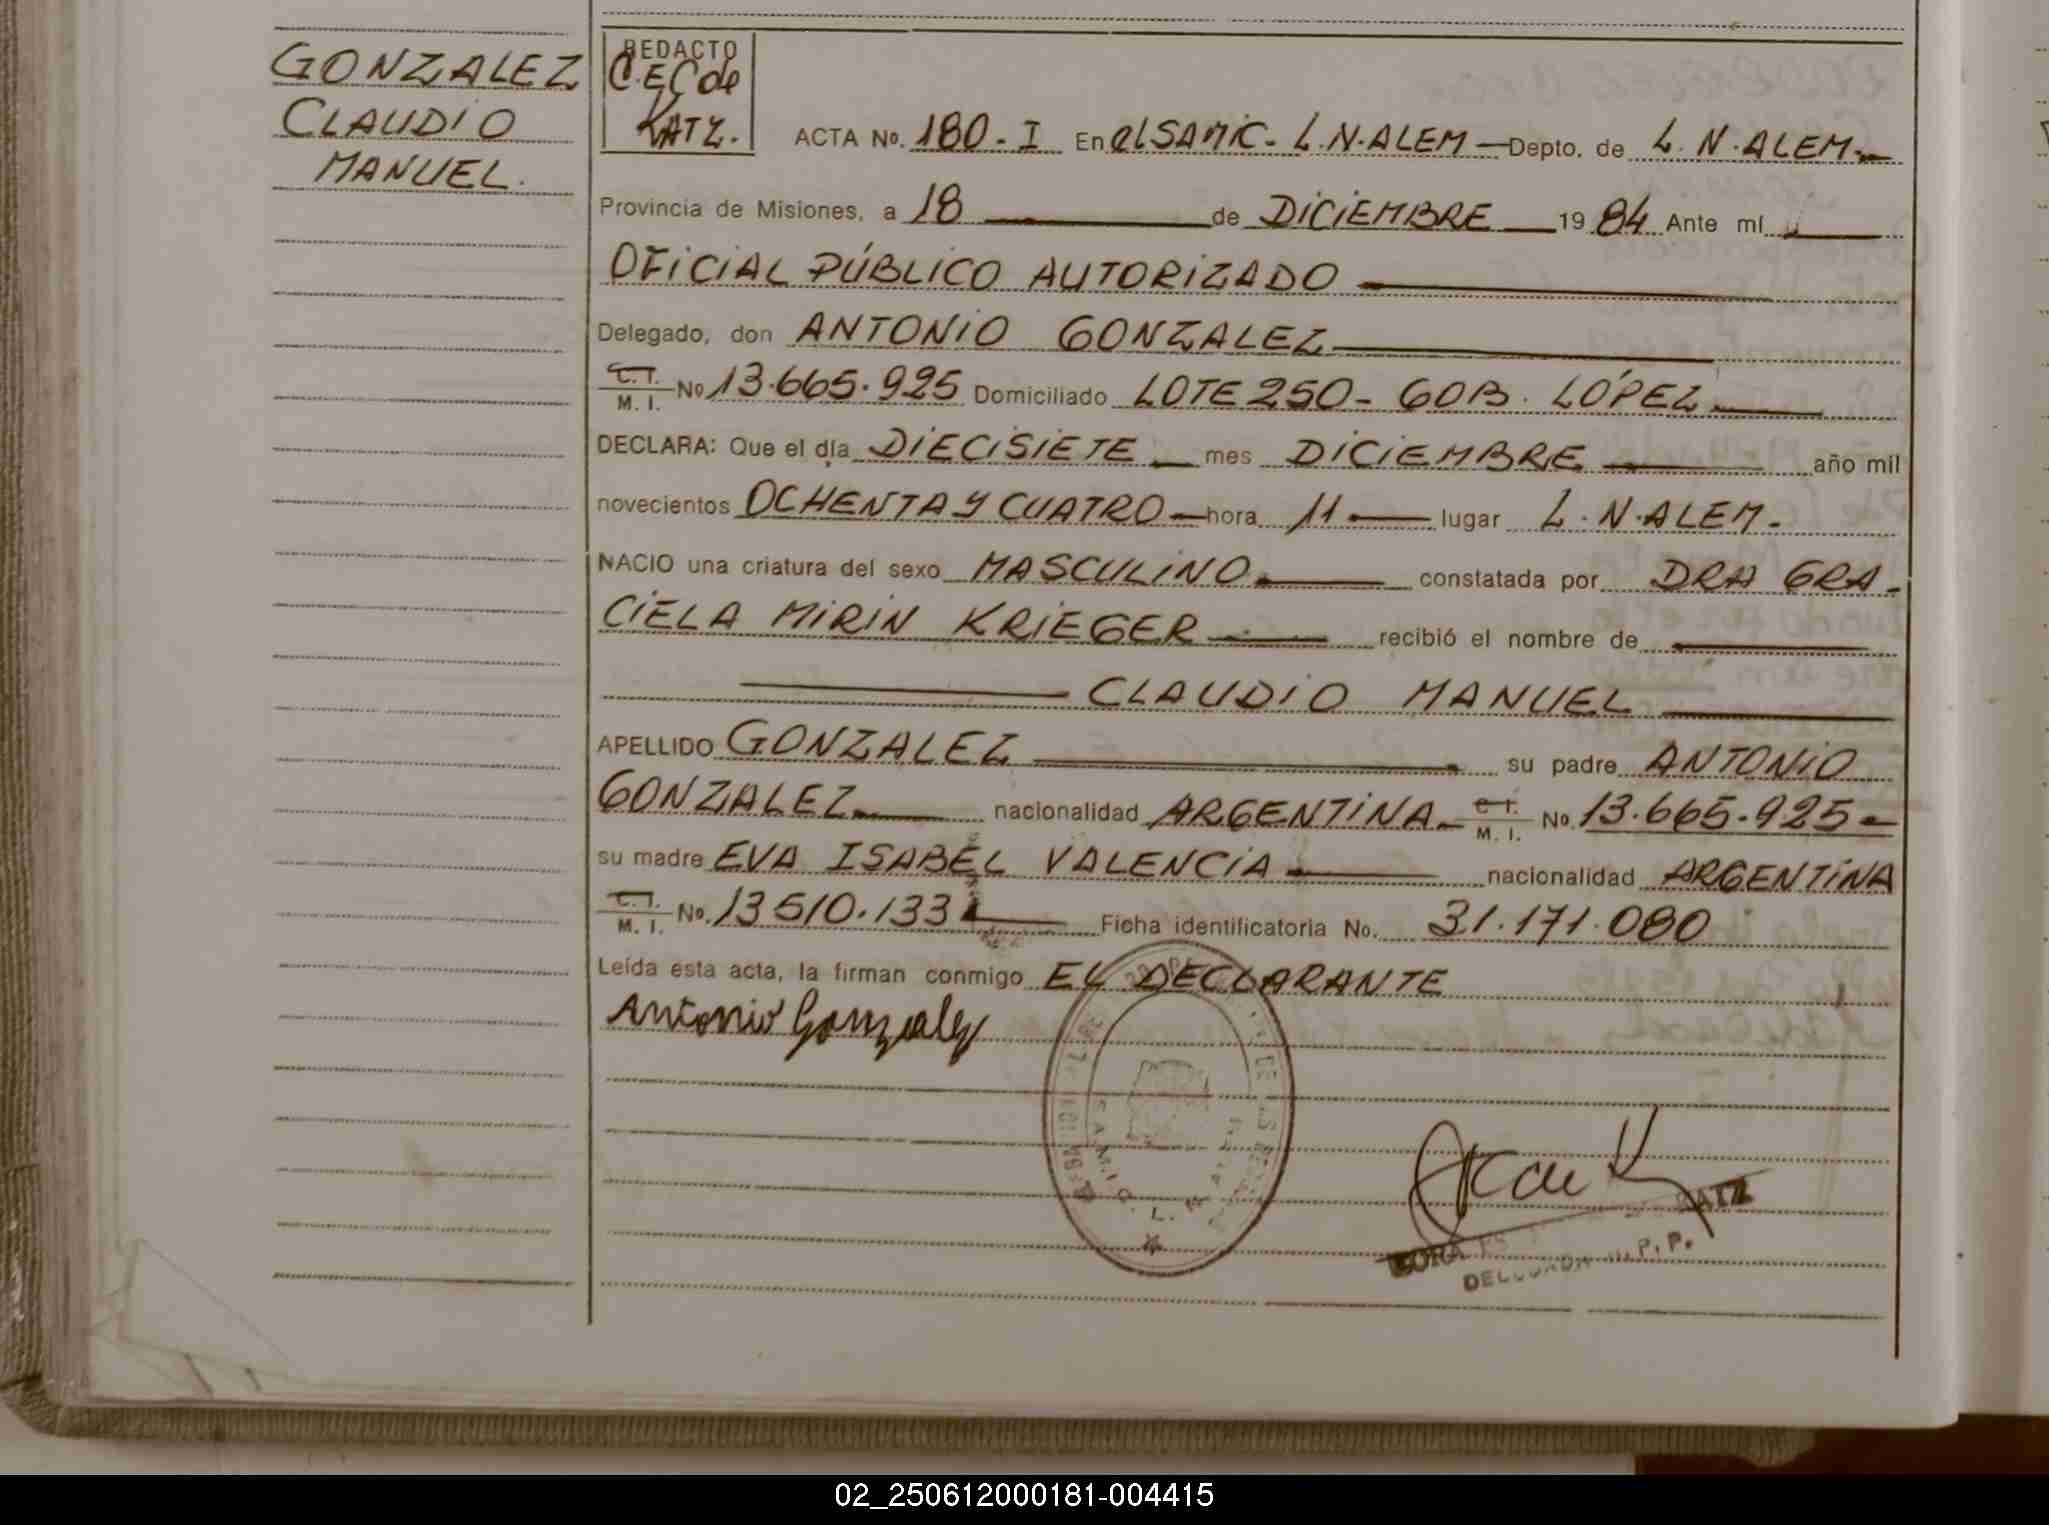 GONZALEZ
CLAUDIO
MANUEL.
REDACTO
C.E.C de
KATZ.
ACTA No. 180-I En el SAMIC- L.N.ALEM — Depto. de L.N.ALEM.—
Provincia de Misiones, a 18 — de DICIEMBRE — 19 84 Ante mí
OFICIAL PÚBLICO AUTORIZADO —
Delegado, don ANTONIO GONZALEZ —
C.I. M.I. No 13.665.925 Domiciliado LOTE 250 - GOB. LÓPEZ —
DECLARA: Que el día DIECISIETE — mes DICIEMBRE — año mil
novecientos OCHENTA Y CUATRO — hora 11 — lugar L.N.ALEM.
NACIO una criatura del sexo MASCULINO — constatada por DRA GRA-
CIELA MIRIN KRIEGER — recibió el nombre de —
— CLAUDIO MANUEL —
APELLIDO GONZALEZ — su padre ANTONIO
GONZALEZ — nacionalidad ARGENTINA — C.I. M.I. No. 13.665.925 —
su madre EVA ISABEL VALENCIA — nacionalidad ARGENTINA
C.I. M.I. No. 13510.133 — Ficha identificatoria No. 31.171.080
Leída esta acta, la firman conmigo EL DECLARANTE
Antonio Gonzalez
KATZ
P.P.
02_250612000181-004415